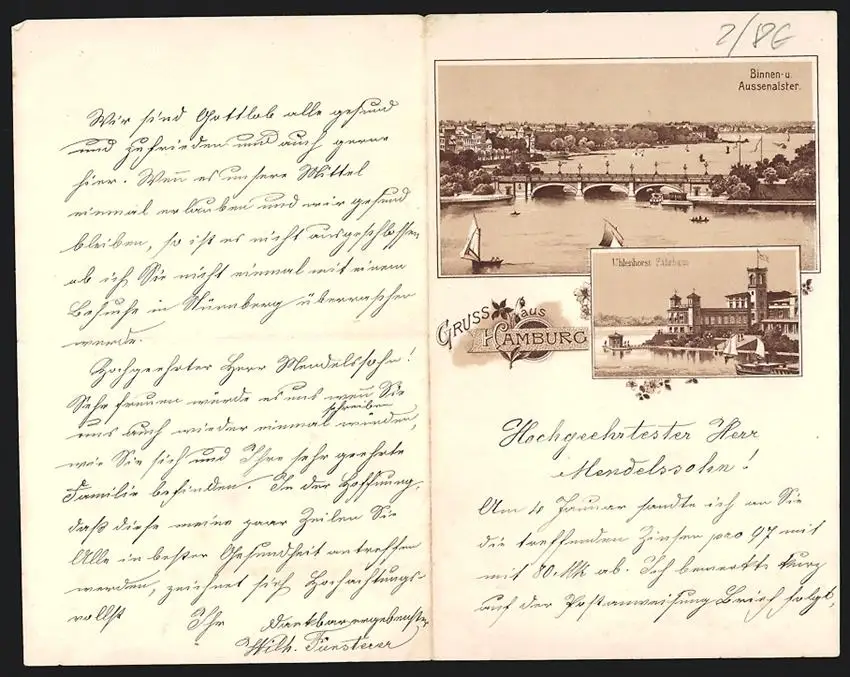 2/86
Binnen- u.
Aussenalster.
Uhlenhorst Fährhaus
GRUSS aus
HAMBURG
Hochgeehrtester Herr
Mendelssohn!
Am 4 Januar sandte ich an Sie
die treffenden Zinsen pro 97 mit
mit 80 Mk ab. Ich bemerkte kurz
auf der Postanweisung Brief folgt,
Wir sind Gottlob alle gesund
und zufrieden und auch gerne
hier. Wen̄ es unsere Mittel
einmal erlauben und wir gesund
bleiben, so ist es nicht ausgeschlossen
ob ich Sie nicht einmal mit einem
Besuche in Nürnberg überraschen
werde.
Hochgeehrter Herr Mendelssohn!
Sehr freuen würde es uns wen̄ Sie
schreiben
uns auch wieder einmal würden,
wie Sie sich und Ihre sehr geehrte
Familie befinden. In der Hoffnung,
daß diese meine paar Zeilen Sie
Alle in bester Gesundheit antreffen
werden, zeichnet sich Hochachtungs-
vollst Ihr dankbar ergebenster
Wilh. Funsterer